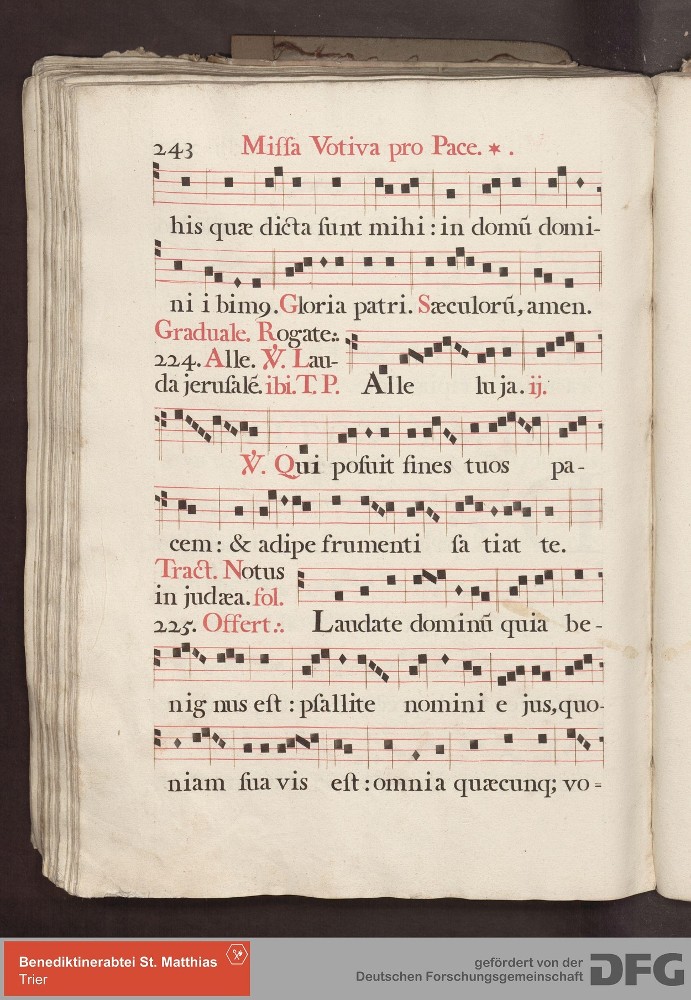 243 Miſſa Votiva pro Pace. * .
his quæ dicta ſunt mihi : in domū domi-
ni i bimꝯ. Gloria patri. Sæculorū, amen.
Graduale. Rogate:.
224. Alle. ℣. Lau-
da jeruſalē. ibi. T. P. Alle lu ja. ij.
℣. Qui poſuit fines tuos pa-
cem : & adipe frumenti ſa tiat te.
Tract. Notus
in judæa. fol.
225. Offert:. Laudate dominū quia be-
nig nus eſt : pſallite nomini e jus, quo-
niam ſua vis eſt : omnia quæcunq; vo=
Benediktinerabtei St. Matthias
Trier
gefördert von der
Deutschen Forschungsgemeinschaft DFG